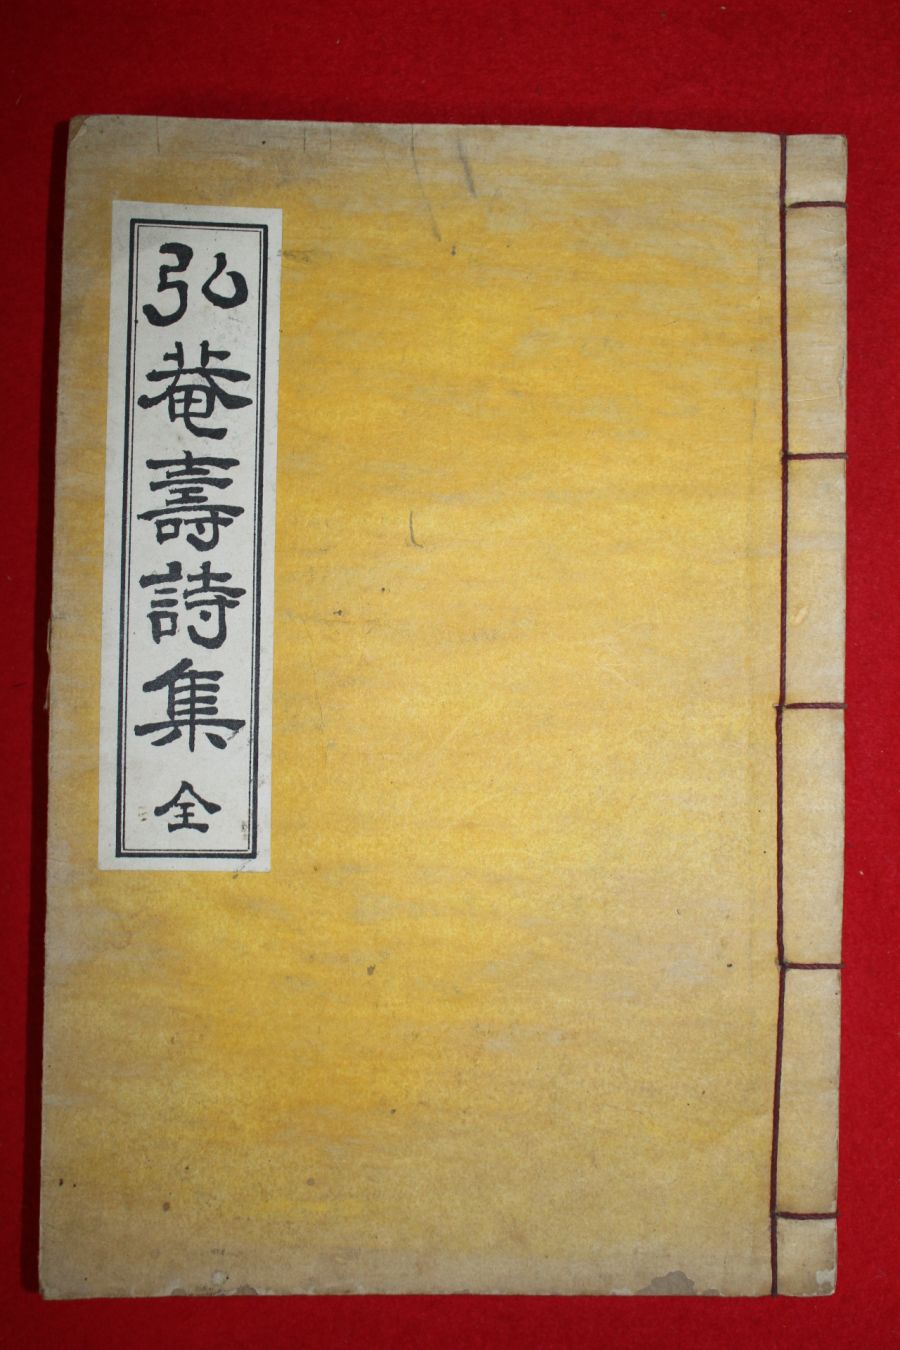 弘菴壽詩集 全